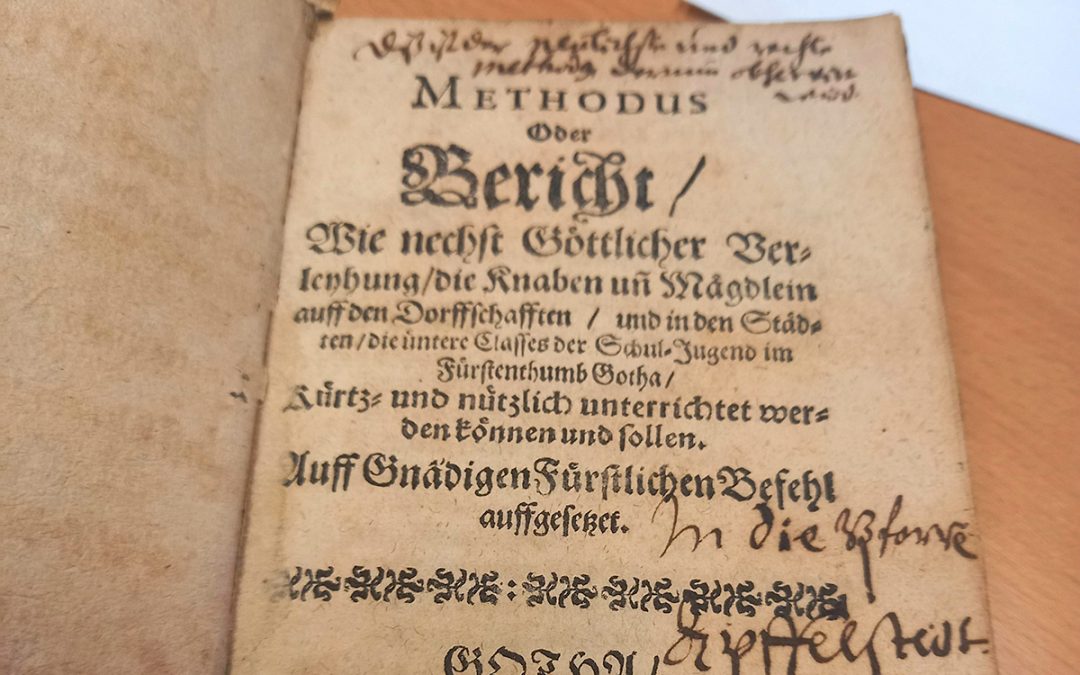 Methodus
Oder
Bericht /
Wie nechst Göttlicher Ver-
leyhung / die Knaben uñ Mägdlein
auff den Dorffschafften / und in den Städ-
ten / die untere Classes der Schul-Jugend im
Fürstenthumb Gotha /
Kürtz- und nützlich unterrichtet wer-
den können und sollen.
Auff Gnädigen Fürstlichen Befehl
auffgesetzet.
In die Pfarre
Apffelstedt.
GOTHA /